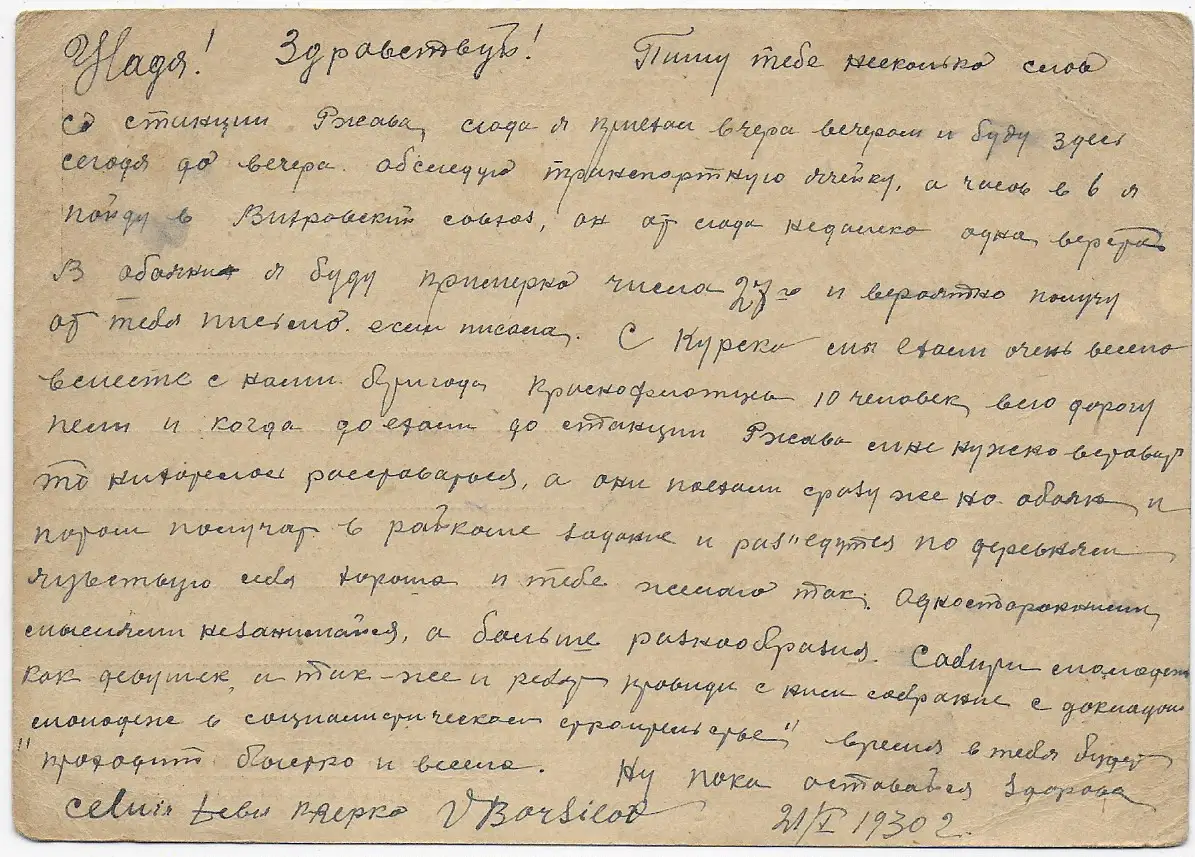 Надя! Здравствуй! Пишу тебе несколько слов
со станции Ржава, сюда я приехал вчера вечером и буду здесь
сегодя до вечера. обследую транспортную ячейку, а часов в 6 я
пойду в союз, он от сюда недалеко одна верста
В обояни я буду примерно числа 27го и вероятно получу
от тебя письмо. если писала. С Курска мы ехали очень весело
вместе с нами бригада Краснофлотцы 10 человек, всю дорогу
пели и когда доехали до станции Ржава мне нужно вставать
то нихотелос расставаться, а они поехали сразу же на обоянь и
потом получат в райкоме задание и раз"едутся по деревням
чувствую себя хорошо и тебе желаю так. Односторонними
мыслями незанимайся, а больше разнообразия. Собири молодежь
как девушек, и так-же и ребят проведи с ними собрание с докладом
"молодежь в социалистическом строительстве" время в тебя будет
проходит быстко и весело. Ну пока оставайся здорова
21/I 1930 г.